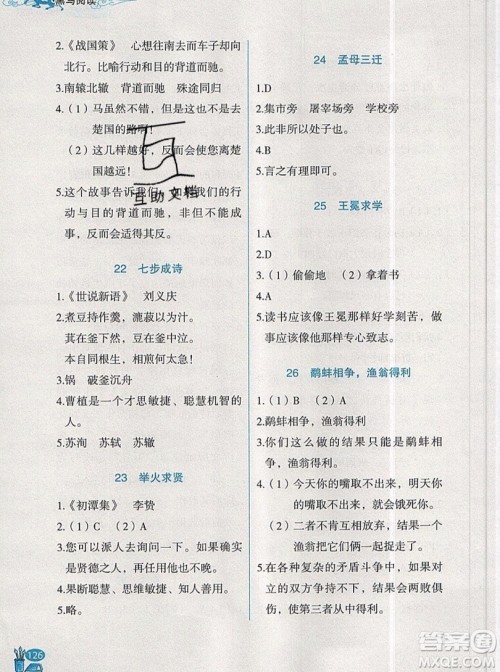 黑马阅读
2.《战国策》 心想往南去而车子却向
北行。比喻行动和目的背道而驰。
3.南辕北辙 殊途同归
4.（1）马虽然不错，但是这不是去
楚国的路啊！
（2）这几样越好，反而会使您离楚
国越远！
5.这个故事告诉我们，如果我们的行
动与目的背道而驰，非但不能成
事，反而会适得其反。
22 七步成诗
1.《世说新语》 刘义庆
2.煮豆持作羹，漉菽以为汁。
萁在釜下然，豆在釜中泣。
本自同根生，相煎何太急！
3.锅 破釜沉舟
4.曹植是一个才思敏捷、聪慧机智的
人。
5.苏洵 苏轼 苏辙
23 举火求贤
1.《初潭集》 李贽
2.（1）C （2）A
3.您可以派人去询问一下。如果确实
是贤德之人，再启用也不晚。
4.果断聪慧、思维敏捷、知人善用。
5.略。
126
24 孟母三迁
1.D
2.集市旁 屠宰场旁 学校旁
3.此非所以处子也。
4.D
5.言之有理即可。
25 王冕求学
1.A
2.D
3.（1）偷偷地 （2）拿着书
4.A
5.读书应该像王冕那样好学刻苦，做
事应该像他那样专心致志。
26 鹬蚌相争，渔翁得利
1.（1）B （2）A
2.鹬蚌相争，渔翁得利
3.你们这么做的结果只能是鹬蚌相
争、渔翁得利。
4.（1）今天你的嘴取不出来，明天你
的嘴取不出来，就会饿死你。
（2）二者不肯互相放弃，结果一
个渔翁走过来，把它们一起捉走了。
5.在各种复杂的矛盾斗争中，如果对
立的双方相持不下，结果会两败俱
伤，使第三者从中得利。
互助文档
答案圈
MXQE.COM